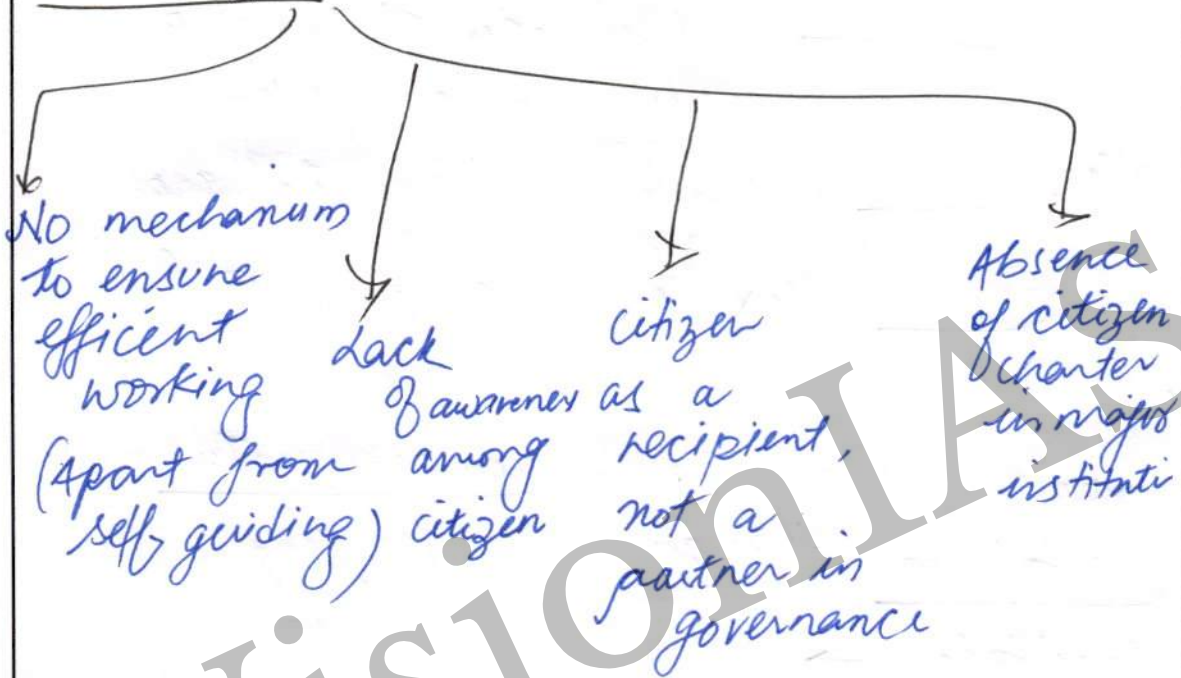 No mechanism
to ensure
efficient
working
(Apart from
self guiding)
Lack
of awareness
among
citizen
citizen
as a
recipient,
not a
partner in
governance
Absence
of citizen
charter
in major
instituti
VisionIAS